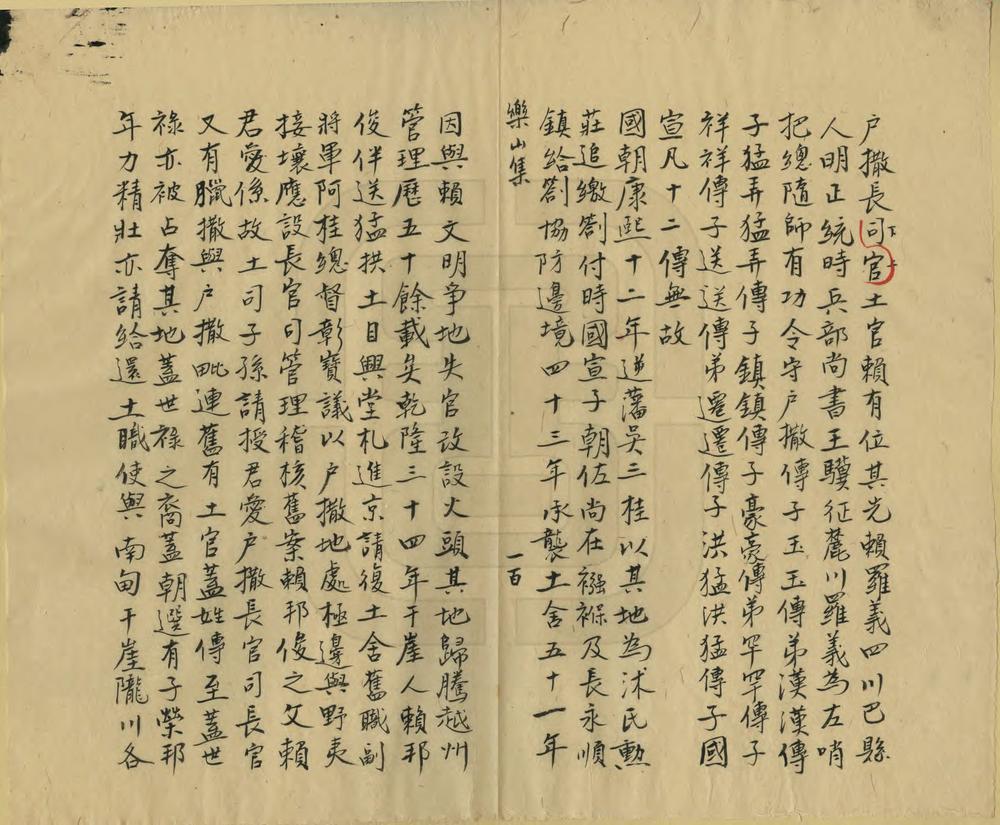 户撒長司官土官賴有位其先賴羅義四川巴縣
人明正統時兵部尚書王驥征麓川羅義為左哨
把總隨師有功令守户撒傳子玉玉傳弟漢漢傳
子猛弄猛弄傳子鎮鎮傳子豪豪傳弟罕罕傳子
祥祥傳子送送傳弟遷遷傳子洪猛洪猛傳子國
宣凡十二傳無故
國朝康熙十二年逆藩吳三桂以其地為沐氏勳
莊追繳劄付時國宣子朝佐尚在襁褓及長永順
鎮給劄協防邊境四十三年承襲土舍五十一年
樂山集
一百
因與賴文明爭地失官改設火頭其地歸騰越州
管理歷五十餘載矣乾隆三十四年干崖人賴邦
俊伴送猛拱土目興堂札進京請復土舍舊職副
將軍阿桂總督彰寶議以户撒地處極邊與野夷
接壤應設長官司管理稽核舊案賴邦俊之父賴
君愛係故土司子孫請授君愛户撒長官司長官
又有臘撒與户撒毗連舊有土官蓋姓傳至蓋世
祿亦被占奪其地蓋世祿之裔蓋朝選有子榮邦
年力精壯亦請給還土職使與南甸干崖隴川各